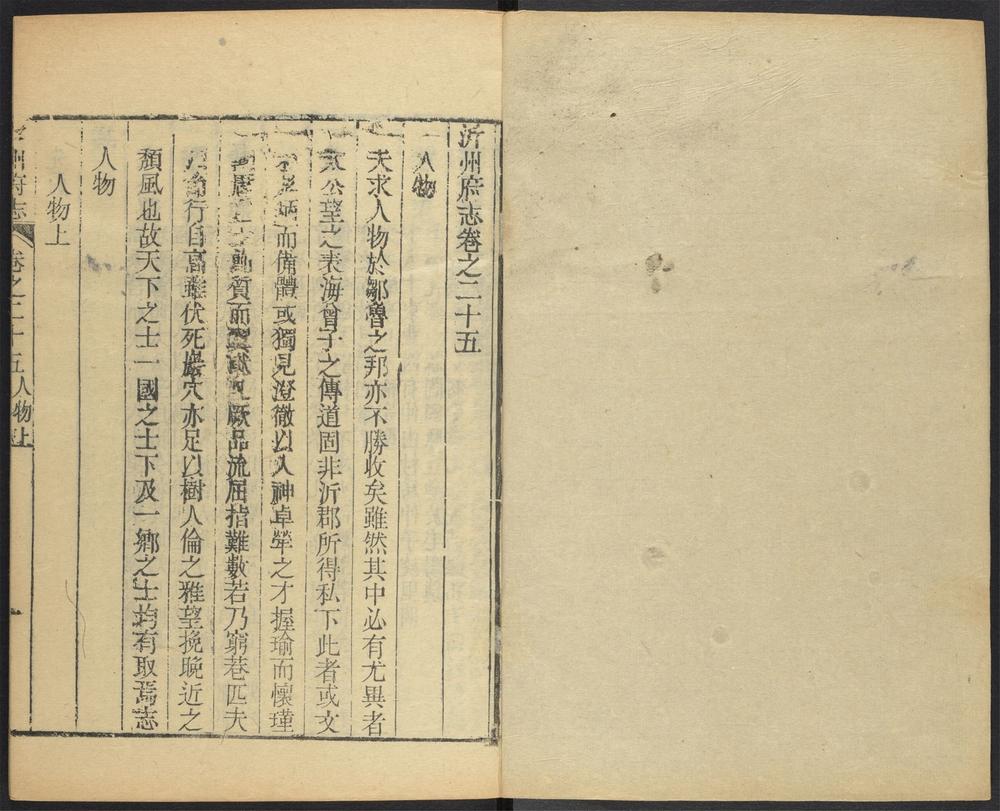 沂州府志卷之二十五
人物
夫求人物於鄒魯之邦亦不勝收矣雖然其中必有尤異者
太公望之表海曾子之傳道固非沂郡所得私下此者或文
而備體或獨見澄徹以入神卓犖之才握瑜而懷瑾
質而厥品流屈指難數若乃窮巷匹夫
行自高雖伏死巖穴亦足以樹人倫之雅望挽晚近之
頹風也故天下之士一國之士下及一鄉之士均有取焉志
人物
人物上
州府志 卷之二十五人物上